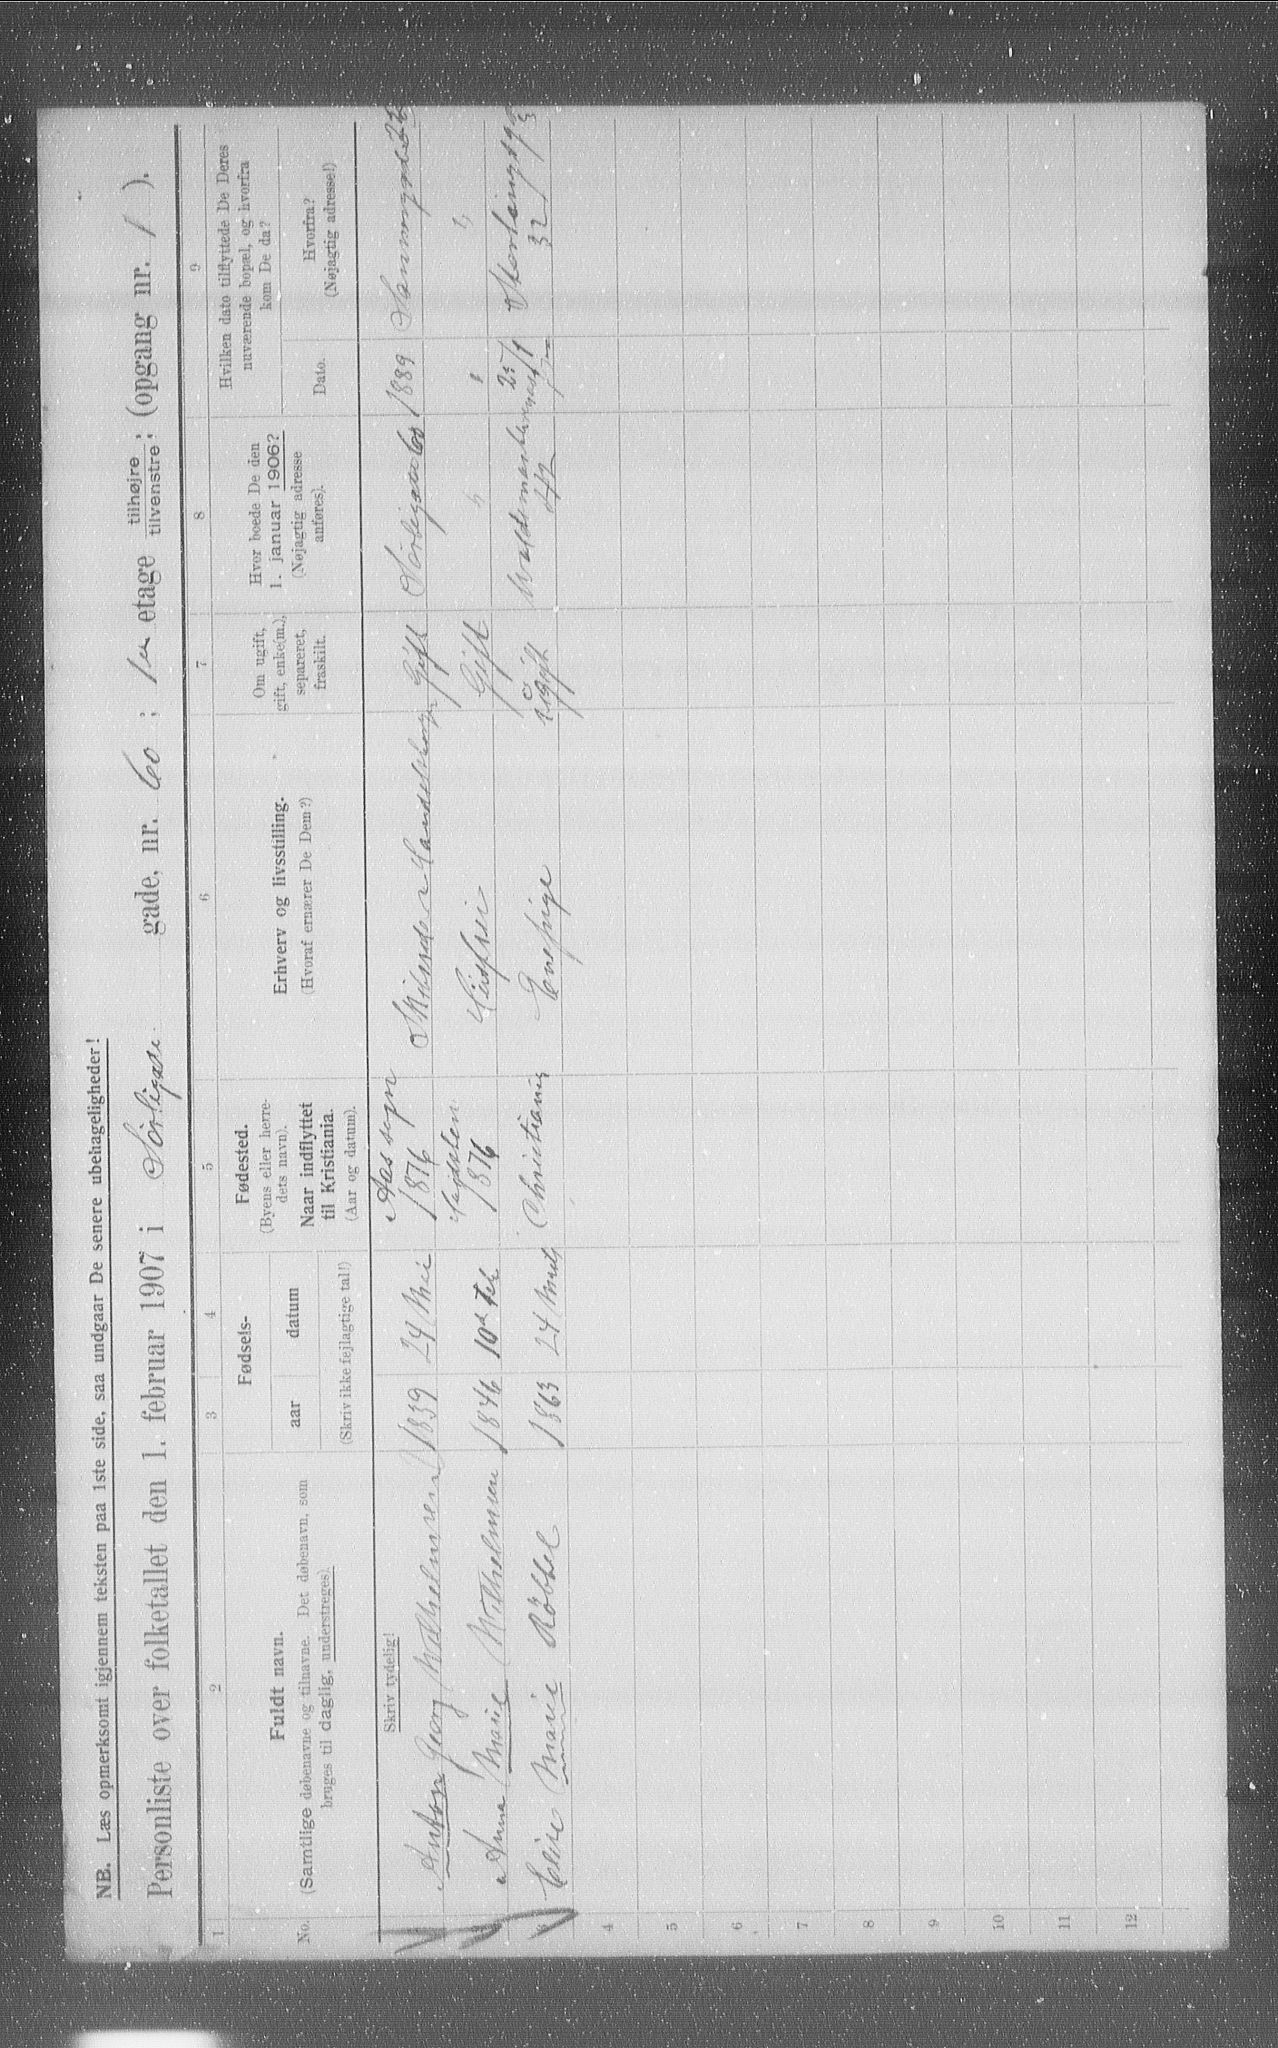 NB. Læs opmerksomt igjennem teksten paa 1ste side, saa undgaar De senere ubehageligheder!
Personliste over folketallet den 1. februar 1907 i Sörligade gade, nr. 60; 1ste etage tilhøjre, tilvenstre, (opgang nr. 1 ).
1 2 3 4 5 6 7 8 9
No.
Fuldt navn.
(Samtlige døbenavne og tilnavne. Det døbenavn, som
bruges til daglig, understreges).
Skriv tydelig!
Fødsels-
aar datum
(Skriv ikke fejlagtige tal!)
Fødested.
(Byens eller herre-
dets navn).
Naar indflyttet
til Kristiania.
(Aar og datum).
Erhverv og livsstilling.
(Hvoraf ernærer De Dem?)
Om ugift,
gift, enke(m.),
separeret,
fraskilt.
Hvor boede De den
1. januar 1906?
(Nøjagtig adresse
anføres).
Hvilken dato tilflyttede De Deres
nuværende bopæl, og hvorfra
kom De da?
Dato.
Hvorfra?
(Nøjagtig adresse!)
Anton Georg Wilhelmsen 1839 24 Mai Aas sogn 1876 Gift Sörligade 60 1889
Anna Marie Wilhelmsen 1846 10de 1876 Gift " "
3 Eline Marie Röbbel 1863 24 Christiania ugift 42 25/1 32
4
5
6
7
8
9
10
11
12